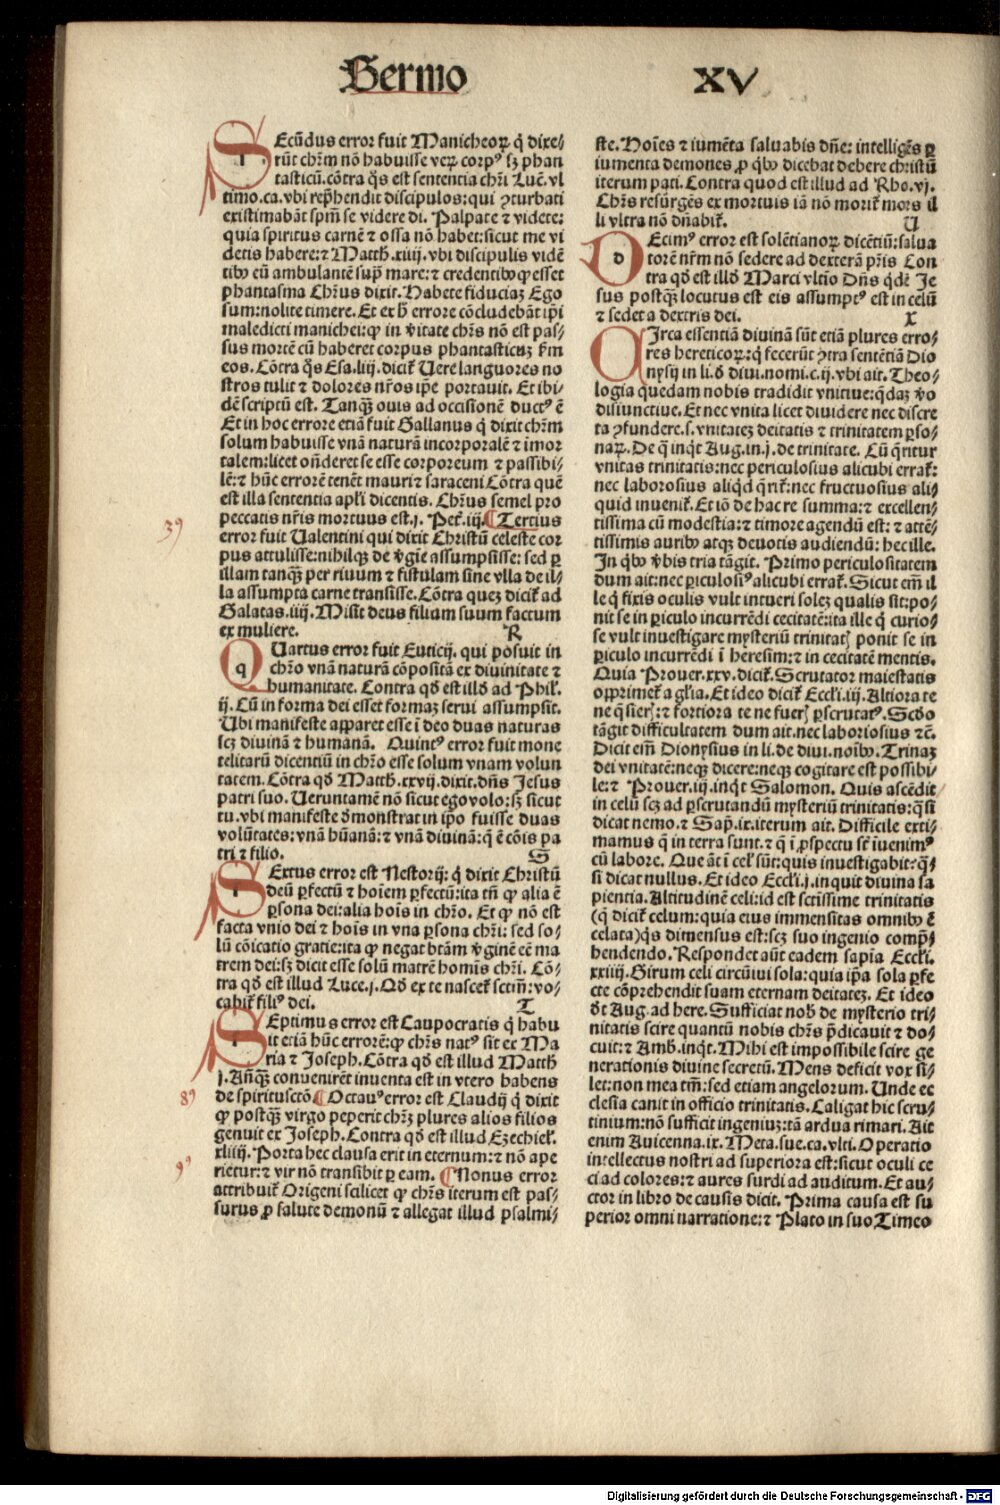 Sermo XV
SEcūdus error fuit Manicheoꝝ q̇ dixe⸗
rūt chr̄m nō habuisse veꝝ corpꝰ sꝫ phan
tasticū.cōtra q̄s est sentencia chr̄i Luc̄.vl
timo.ca.vbi rep̄hendit discipulos:qui ꝯturbati
existimabāt spm̄ se videre di. Palpate ⁊ videte:
quia spiritus carnē ⁊ ossa nō habet:sicut me vi
detis habere:⁊ Matth.xiiij.vbi discipulis vidē
tibꝰ eū ambulantē sup̄ mare:⁊ credentibꝰ ꝙ esset
phantasma Chr̄us dixit.Habete fiduciaꝫ Ego
sum:nolite timere. Et ex h̄ errore cōcludebāt ip̄i
maledicti manichei:ꝙ in v̄itate chr̄s nō est pas⸗
sus mortē cū haberet corpus phantasticuꝫ s̄m
eos. Cōtra q̄s Esa.liij.dicit̄ Uere languores no
stros tulit ⁊ dolores nr̄os ip̄e portauit. Et ibi⸗
dē scriptū est. Tanq̄ꝫ ouis ad occisionē ductꝰ ē
Et in hoc errore etiā fuit Gallanus q̇ dixit chr̄m
solum habuisse vnā naturā incorporalē ⁊ īmor
talem:licet on̄deret se esse corporeum ⁊ passibi⸗
lē:⁊ hūc errorē tenēt mauri ⁊ saraceni Cōtra quē
est illa sententia apl̄i dicentis. Chr̄us semel pro
peccatis nr̄is mortuus est.j. Pet̄.iij.¶Tertius
error fuit Ualentini qui dixit Christū celeste cor
pus attulisse:nihilqꝫ de v̄gīe assumpsisse: sed ꝑ
illam tanq̄ꝫ per riuum ⁊ fistulam sine vlla de il⸗
la assumpta carne transisse. Cōtra queꝫ dicit̄ ad
Galatas.iiij. Misit deus filiam suum factum
ex muliere. R
QUartus error fuit Euticij. qui posuit in
chr̄o vnā naturā cōpositā ex diuinitate ⁊
humanitate. Contra qd̄ est illd̄ ad Phil̄.
ij. Cū in forma dei esset formaꝫ serui assumpsit.
Ubi manifeste apparet esse ī deo duas naturas
scꝫ diuinā ⁊ humanā. Quintꝰ error fuit mone
telitarū dicentiū in chr̄o esse solum vnam volun
tatem. Cōtra qd̄ Matth̄.xxvij.dixit.dn̄s Jesus
patri suo. Ueruntamē nō sicut ego volo:sꝫ sicut
tu.vbi manifeste d̄monstrat in ip̄o fuisse duas
volūtates: vnā hūanā:⁊ vnā diuinā:q̄ ē cōis pa
tri ⁊ filio. S
SExtus error est Nestorij: q̇ dixit Christū
deū ꝑfectū ⁊ hoīem ꝑfectū:ita tn̄ ꝙ alia ē
ꝑsona dei:alia hoīs in chr̄o. Et ꝙ nō est
facta vnio dei ⁊ hoīs in vna ꝑsona chr̄i: sed so⸗
lū cōicatio gratie:ita ꝙ negat btām v̄ginē eē ma
trem dei:sꝫ dicit esse solū matrē homīs chr̄i. Cō⸗
tra qd̄ est illud Luce.j. Qd̄ ex te nascet̄ sctm̄:vo⸗
cabit̄ filiꝰ dei. T
SEptimus error est Caupocratis q̇ habu
it etiā hūc errorē:ꝙ chr̄s natꝰ sit ex Ma
ria ⁊ Joseph. Cōtra qd̄ est illud Matth̄
j.Añq̄ꝫ conuenirēt inuenta est in vtero habens
de spiritusctō.¶Octauꝰ error est Claudij q̇ dixit
ꝙ postq̄ꝫ virgo peperit chr̄ꝫ plures alios filios
genuit ex Joseph. Contra qd̄ est illud Ezechiel̄.
xliiij. Porta hec clausa erit in eternum:⁊ nō ape
rietur:⁊ vir nō transibit ꝑ eam. ¶Nonus error
attribuit̄ Origeni scilicet ꝙ chr̄s iterum est pas⸗
surus ꝓ salute demonū ⁊ allegat illud psalmi⸗
3ꝰ
8ꝰ
9ꝰ
ste. Hoīes ⁊ iumēta saluabis dn̄e: intelligēs ꝑ
iumenta demones ꝓ qbꝰ dicebat debere christū
iterum pati. Contra quod est illud ad Rho.vj.
Chr̄s resurgēs ex mortuis iā nō morit̄ mors il
li vltra nō dn̄abit̄. U
DEcimꝰ error est solētianoꝝ dicētiū:salua
torē nr̄m nō sedere ad dexterā pr̄is Con
tra qd̄ est illd̄ Marci vltīo Dn̄s qdē Je
sus postq̄ꝫ locutus est eis assumptꝰ est in celū
⁊ sedet a dextris dei. X
CIrca essentiā diuinā sūt etiā plures erro⸗
res hereticoꝝ:q̇ fecerūt ꝯtra sentētiā Dio
nysij in li.d̄ diui.nomi.c.ij.vbi ait. Theo⸗
logia quedam nobis tradidit vnitiue:q̄daꝫ v̄o
disiunctiue. Et nec vnita licet diuidere nec discre
ta ꝯfundere.s.vnitateꝫ deitatis ⁊ trinitatem ꝑso⸗
naꝝ. De q̄ inqt Aug.in.j.de trinitate. Cū q̄ritur
vnitas trinitatis:nec periculosius alicubi errat̄:
nec laborosius aliqd q̄rit̄:nec fructuosius ali⸗
quid inuenit̄. Et iō de hac re summa:⁊ excellen⸗
tissima cū modestia:⁊ timore agendū est: ⁊ attē⸗
tissimis auribꝰ atqꝫ deuotis audiendū: hec ille.
In qbꝰ v̄bis tria tāgit. Primo periculositatem
dum ait:nec ꝑiculosiꝰ alicubi errat̄. Sicut em̄ il
le q̇ fixis oculis vult intueri soleꝫ qualis sit:po⸗
nit se in ꝑiculo incurrēdi cecitatē:ita ille q̇ curio⸗
se vult inuestigare mysteriū trinitatꝭ ponit se in
ꝑiculo incurrēdi ī heresim:⁊ in cecitatē mentis.
Quia Prouer.xxv.dicit̄. Scrutator maiestatis
opprimet̄ a gl̄ia. Et ideo dicit̄ Eccl̄i.iij. Altiora te
ne q̄sierꝭ:⁊ fortiora te ne fuerꝭ ꝑscrutatꝰ. Scd̄o
tāgit difficultatem dum ait.nec laboriosius ⁊c̄.
Dicit em̄ Dionysius in li.de diui.noībꝰ. Trinaꝫ
dei vnitatē:neqꝫ dicere:neqꝫ cogitare est possibi⸗
le:⁊ Prouer.iij.inqt Salomon. Quis ascēdit
in celū scꝫ ad ꝑscrutandū mysteriū trinitatis:q̄si
dicat nemo.⁊ Sap̄.ix.iterum ait. Difficile exti⸗
mamus q̄ in terra sunt.⁊ q̄ ī ꝓspectu sūt īuenimꝰ
cū labore. Que āt ī cel̄ sūt:quis inuestigabit:q̄⸗
si dicat nullus. Et ideo Eccl̄i.j.inquit diuina sa
pientia. Altitudinē celi:id est sctissime trinitatis
(q̄ dicit̄ celum:quia eius immensitas omnibꝰ ē
celata)q̇s dimensus est:scꝫ suo ingenio comp̄⸗
hendendo. Respondet aūt eadem sapīa Eccl̄i.
xxiiij. Girum celi circūiui sola:quia ip̄a sola ꝑfe
cte cōprehendit suam eternam deitateꝫ. Et ideo
d̄t Aug.ad here. Sufficiat nob̄ de mysterio tri⸗
nitatis scire quantū nobis chr̄s p̄dicauit ⁊ do⸗
cuit:⁊ Amb̄.inqt. Mihi est impossibile scire ge
nerationis diuine secretū. Mens deficit vox si⸗
let:non mea tm̄:sed etiam angelorum. Unde ec
clesia canit in officio trinitatis. Caligat hic scru⸗
tinium:nō sufficit ingeniuꝫ:tā ardua rimari. Ait
enim Auicenna.ix. Meta.sue.ca.vlti. Operatio
intellectus nostri ad superiora est:sicut oculi ce
ci ad colores:⁊ aures surdi ad auditum. Et au⸗
ctor in libro de causis dicit. Prima causa est su
perior omni narratione:⁊ Plato in suo Timeo
Digitalisierung gefördert durch die Deutsche Forschungsgemeinschaft - DFG